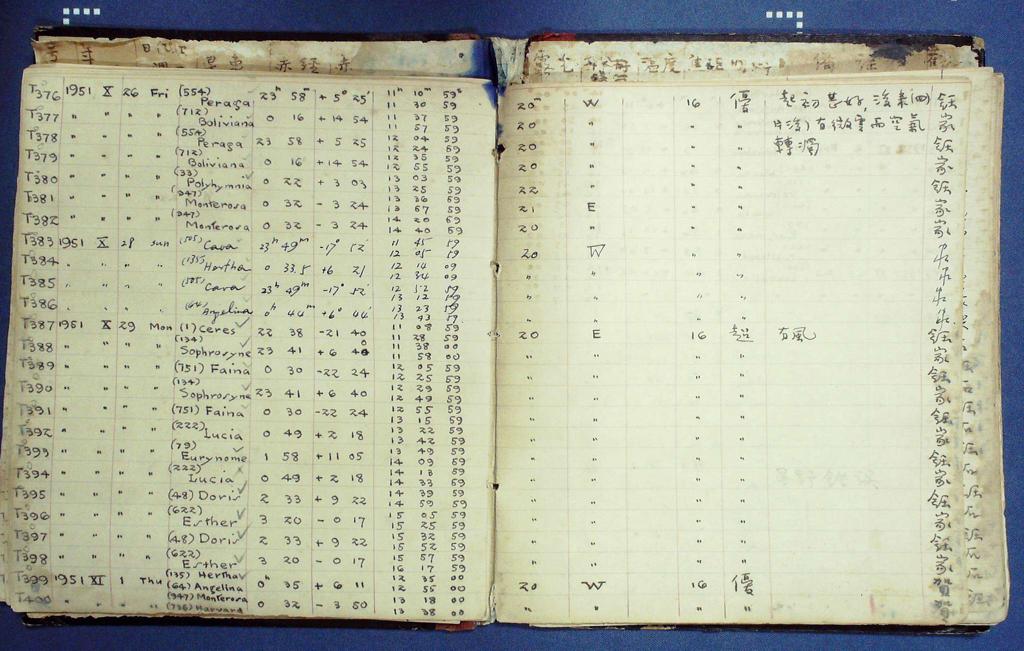 T376 1951 X 26 Fri (554) Peraga 23ʰ 58ᵐ + 5° 25' 11ʰ 10ᵐ 59ˢ 20ᵐ W 16 優
11 30 59
T377 " " " " (712) Boliviana 0 16 +14 54 11 37 59 20 " " "
11 57 59
T378 " " " " (554) Peraga 23 58 + 5 25 12 04 59 20 " " "
12 24 59
T379 " " " " (712) Boliviana 0 16 +14 54 12 35 59 20 " " "
12 55 59
T380 " " " " (33) Polyhymnia 0 22 + 3 03 13 03 59 22 " " "
13 25 59
T381 " " " " (947) Monterosa 0 32 - 3 24 13 36 59 21 E " "
13 57 59
T382 " " " " (947) Monterosa 0 32 - 3 24 14 20 59 20 " " "
14 40 59
T383 1951 X 28 Sun (505) Cava 23ʰ 49ᵐ -17° 52' 11 45 59 20 W " "
12 05 59
T384 " " " (135) Hertha 0 33.5 +6 21 12 14 09 " " " "
12 34 09
T385 " " " (505) Cava 23ʰ 49ᵐ -17° 52' 12 52 59 " " " "
13 12 59
T386 " " " (64) Angelina 0ʰ 44ᵐ +6° 44 13 23 59 " " " "
13 43 59
T387 1951 X 29 Mon (1) Ceres 22 38 -21 40 11 08 59 20 E 16 超 有風
11 28 59
T388 " " " " (134) Sophrosyne 23 41 + 6 40 11 38 00 " " " "
11 58 00
T389 " " " " (751) Faina 0 30 -22 24 12 05 59 " " " "
12 25 59
T390 " " " " (134) Sophrosyne 23 41 + 6 40 12 29 59 " " " "
12 49 59
T391 " " " " (751) Faina 0 30 -22 24 12 55 59 " " " "
13 15 59
T392 " " " " (222) Lucia 0 49 + 2 18 13 22 59 " " " "
13 42 59
T393 " " " " (79) Eurynome 1 58 +11 05 13 49 59 " " " "
14 09 59
T394 " " " " (222) Lucia 0 49 + 2 18 14 13 59 " " " "
14 33 59
T395 " " " " (48) Doris 2 33 + 9 22 14 39 59 " " " "
14 59 59
T396 " " " " (622) Esther 3 20 - 0 17 15 05 59 " " " "
15 25 59
T397 " " " " (48) Doris 2 33 + 9 22 15 32 59 " " " "
15 52 59
T398 " " " " (622) Esther 3 20 - 0 17 15 57 59 " " " "
16 17 59
T399 1951 XI 1 Thu (135) Hertha (64) Angelina 0ʰ 35 + 6 11 12 35 00 20 W 16 優
12 55 00
T400 " " " " (947) Monterosa (736) Harvard 0 32 - 3 50 13 18 00 " " " "
13 38 00
起初甚好,後來(四
片後)有微雲而空氣
轉濁